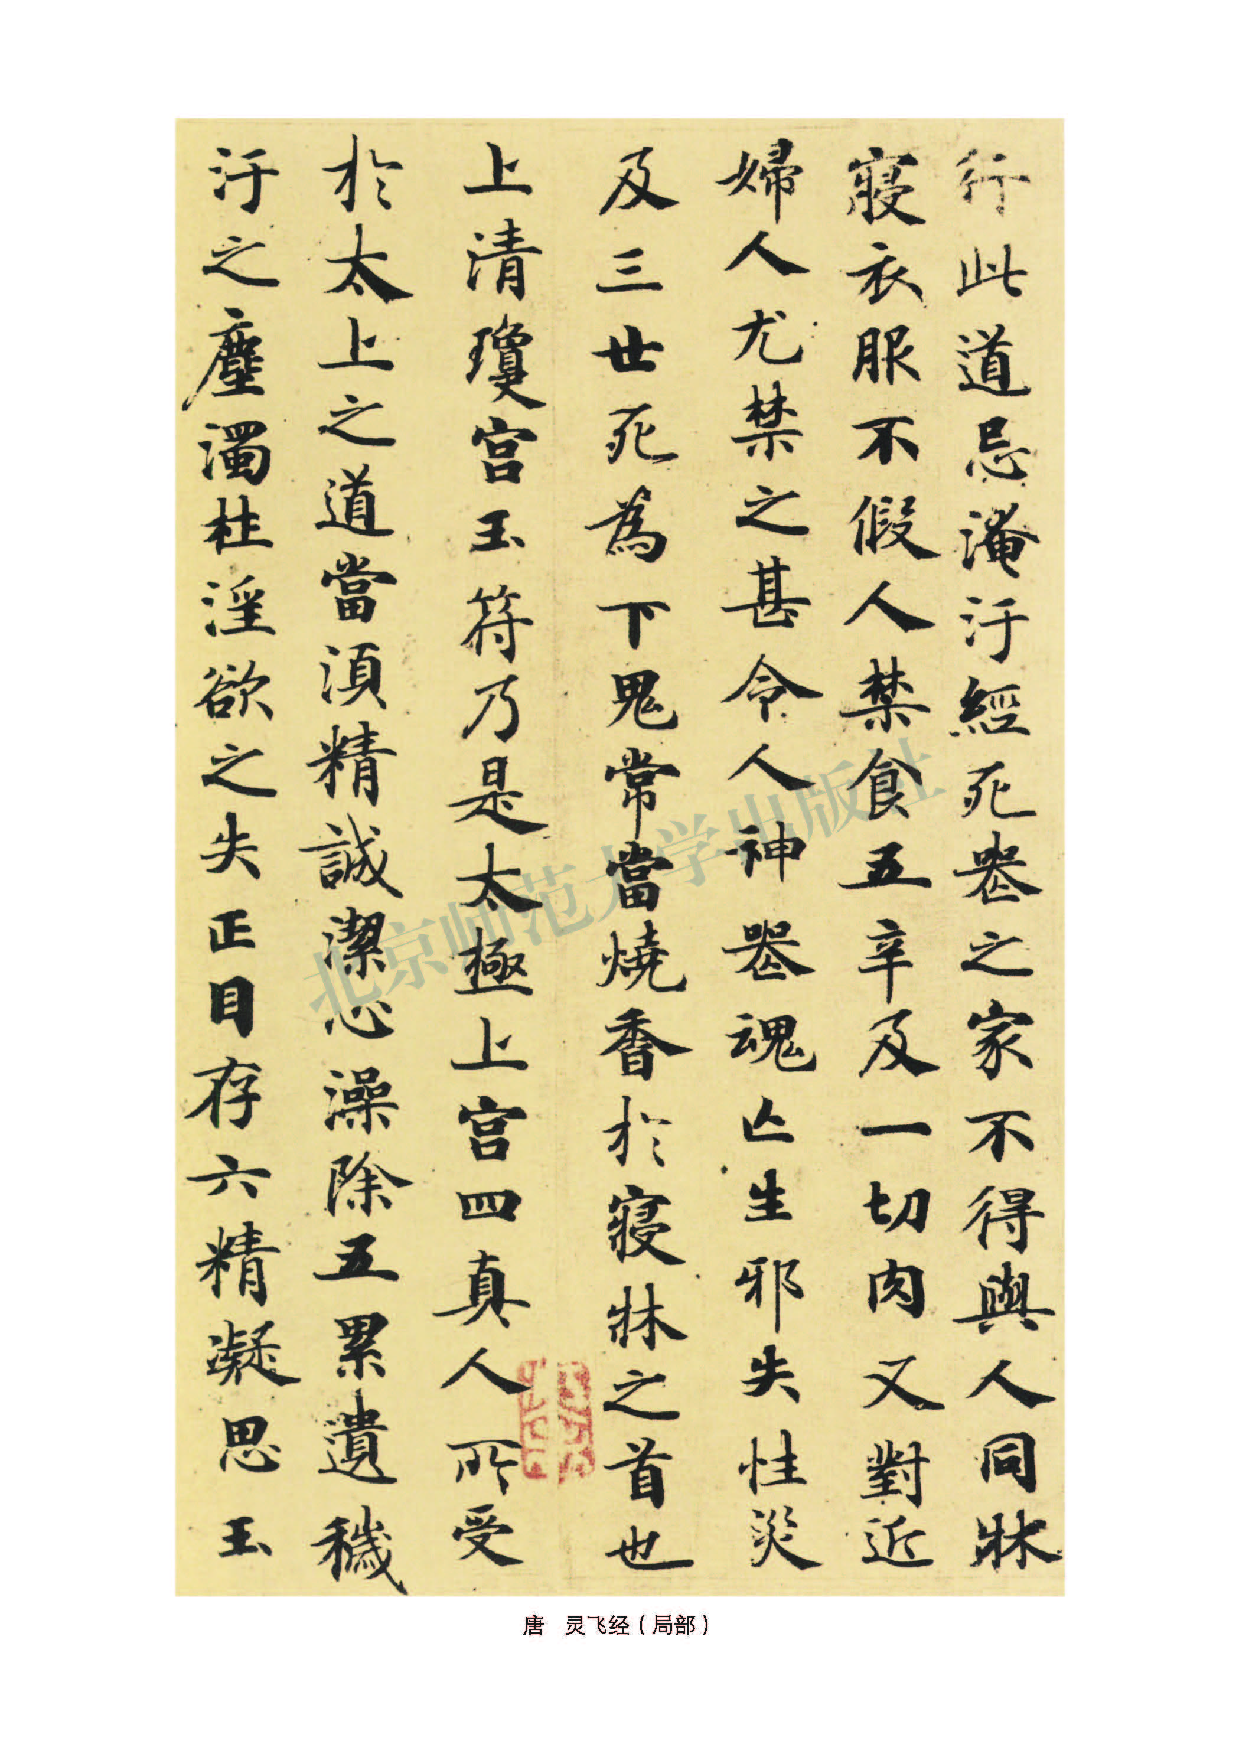 行此道忌淹汙經死䘮之家不得與人同牀
寝衣服不假人禁食五辛及一切肉又對近
婦人尤禁之甚令人神䘮魂亡生邪失性災
及三世死為下鬼常當燒香於寝牀之首也
上清瓊宮玉符乃是太極上宮四真人所受
於太上之道當湏精誠潔心澡除五累遺穢
汙之塵濁杜淫欲之失正目存六精凝思玉
北京师范大学出版社
唐 灵飞经（局部）